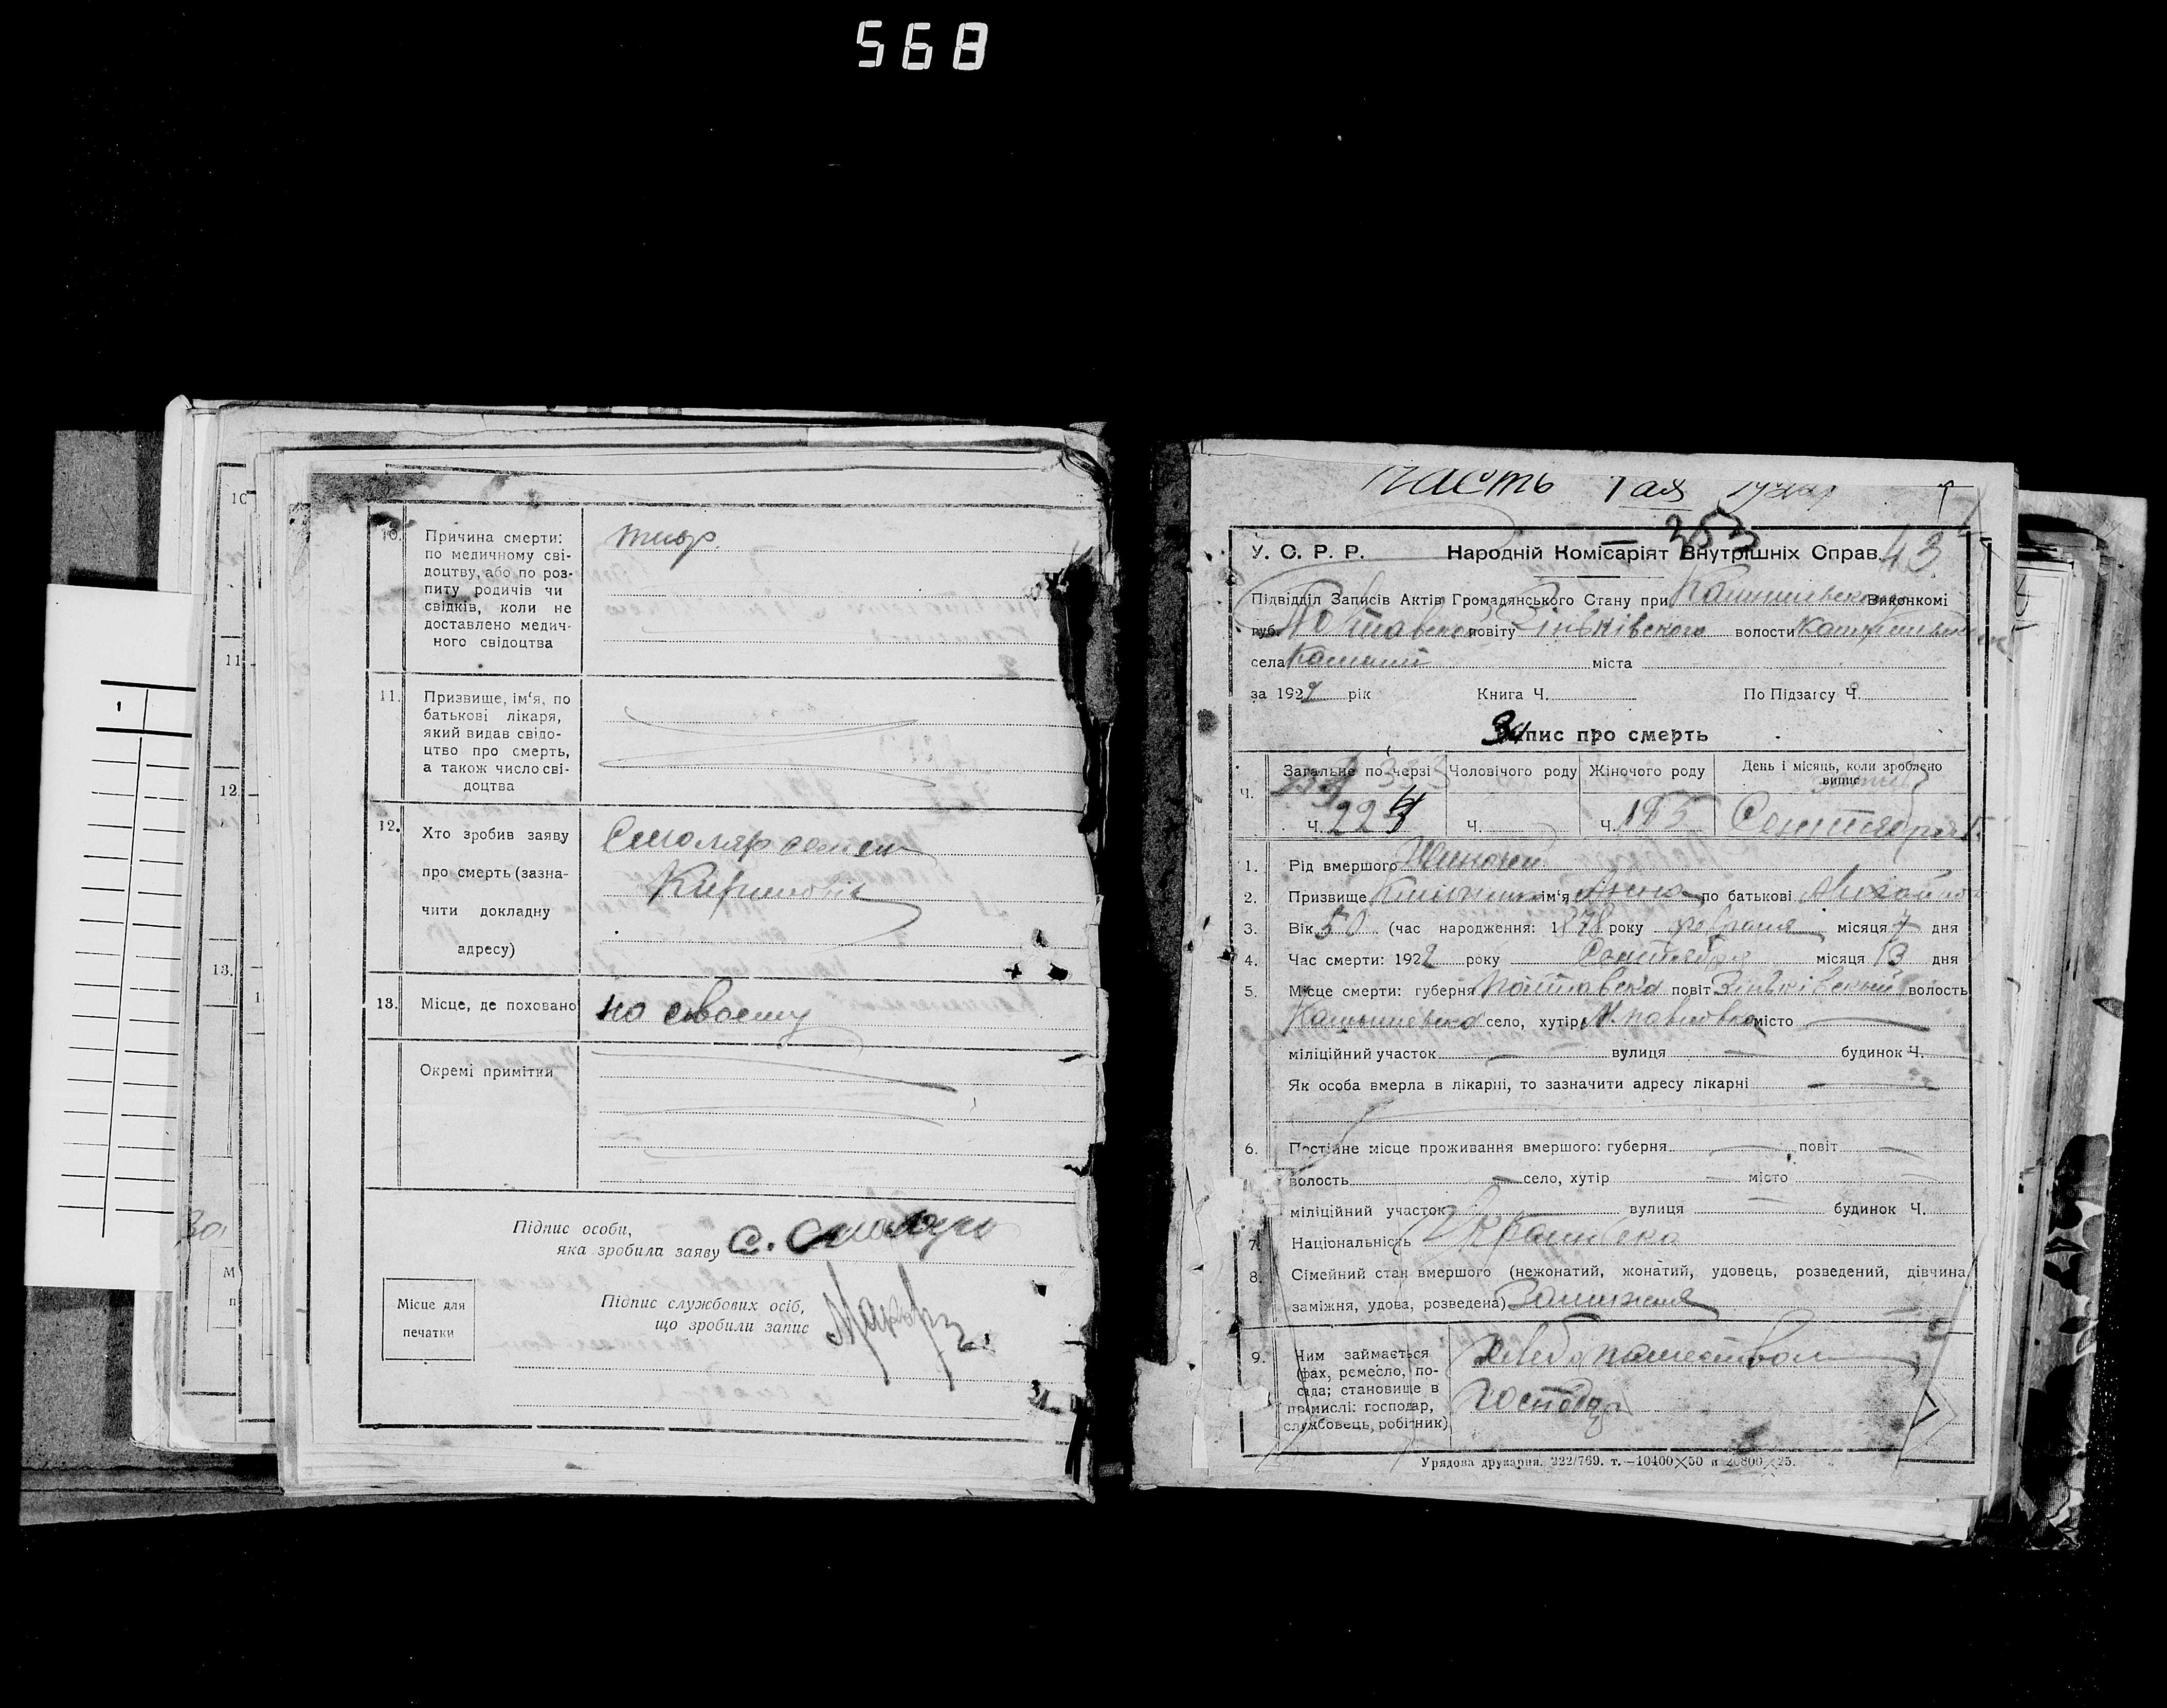 568
10.
Причина смерти:
по медичному сві-
доцтву, або по роз-
питу родичів чи
свідків, коли не
доставлено медич-
ного свідоцтва
тиф
11.
Призвище, ім'я, по
батькові лікаря,
який видав свідо-
цтво про смерть,
а також число сві-
доцтва
12.
Хто зробив заяву
про смерть (зазна-
чити докладну
адресу)
Смоляр
13.
Місце, де поховано
на своему
Окремі примітки
Підпис особи,
яка зробила заяву С.
Місце для
печатки
Підпис службових осіб,
що зробили запис
10
11
12
13.
Часть 1 ая
253
У. С. Р. Р. Народній Комісаріят Внутрішніх Справ. 43
Підвідділ Записів Актів Громадянського Стану при Виконкомі
губ. Полтавской повіту Зіньківского волости
села міста
за 192 рік Книга Ч. По Підзагсу Ч.
Запис про смерть
Ч.
Загальне по черзі Чоловічого роду Жіночого роду День і місяць, коли зроблено
випис
Ч. 224 Ч. Ч. 185 Сентября
1. Рід вмершого Жиночий
2. Призвище ім'я Анна по батькові
3. Вік 50 (час народження: 1878 року февраля місяця 7 дня
4. Час смерти: 1922 року Сентября місяця 13 дня
5. Місце смерти: губерня Полтавска повіт Зіньківський волость
село, хутір М. павловка місто
міліційний участок вулиця будинок Ч.
Як особа вмерла в лікарні, то зазначити адресу лікарні
6. Постійне місце проживання вмершого: губерня повіт
волость село, хутір місто
міліційний участок вулиця будинок Ч.
7. Національність Украинска
8. Сімейний стан вмершого (нежонатий, жонатий, удовець, розведений, дівчина,
заміжня, удова, розведена) Замижня
9.
Чим займається
(фах, ремесло, по-
сада; становище в
промислі: господар,
службовець, робітник)
Хлебопашеством
господар
Урядова друкарня. 222/769. т.—10400×50 и 20800×25.